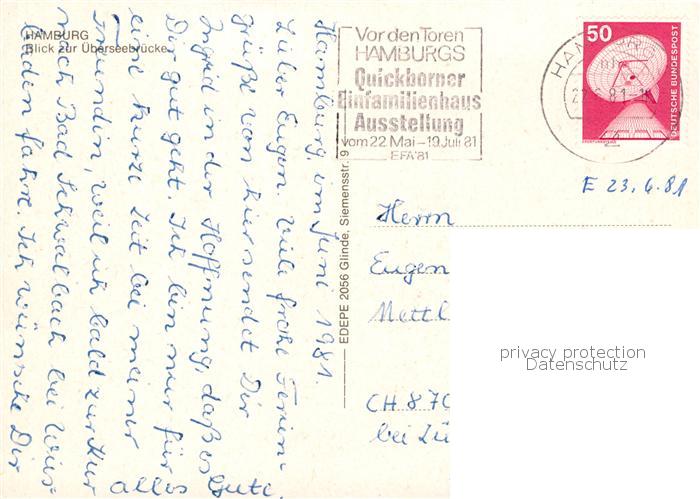 HAMBURG
Blick zur Überseebrücke
Hamburg, im Juni 1981.
Lieber Eugen. Viele frohe Ferien-
grüße von hier sendet Dir
Ingrid in der Hoffnung, daß es
Dir gut geht. Ich bin nur für
eine kurze Zeit bei meiner
Freundin, weil ich bald zur Kur
nach Bad Schwalbach bei Wies-
baden fahre. Ich wünsche Dir
alles Gute.
EDEPE 2056 Glinde, Siemensstr. 9
Vor den Toren
HAMBURGS
Quickborner
Einfamilienhaus
Ausstellung
vom 22 Mai – 19 Juli 81
EFA'81
50
DEUTSCHE BUNDESPOST
E 23.6.81
Herrn
Eugen
Mettl
CH 870
bei Zü
privacy protection
Datenschutz